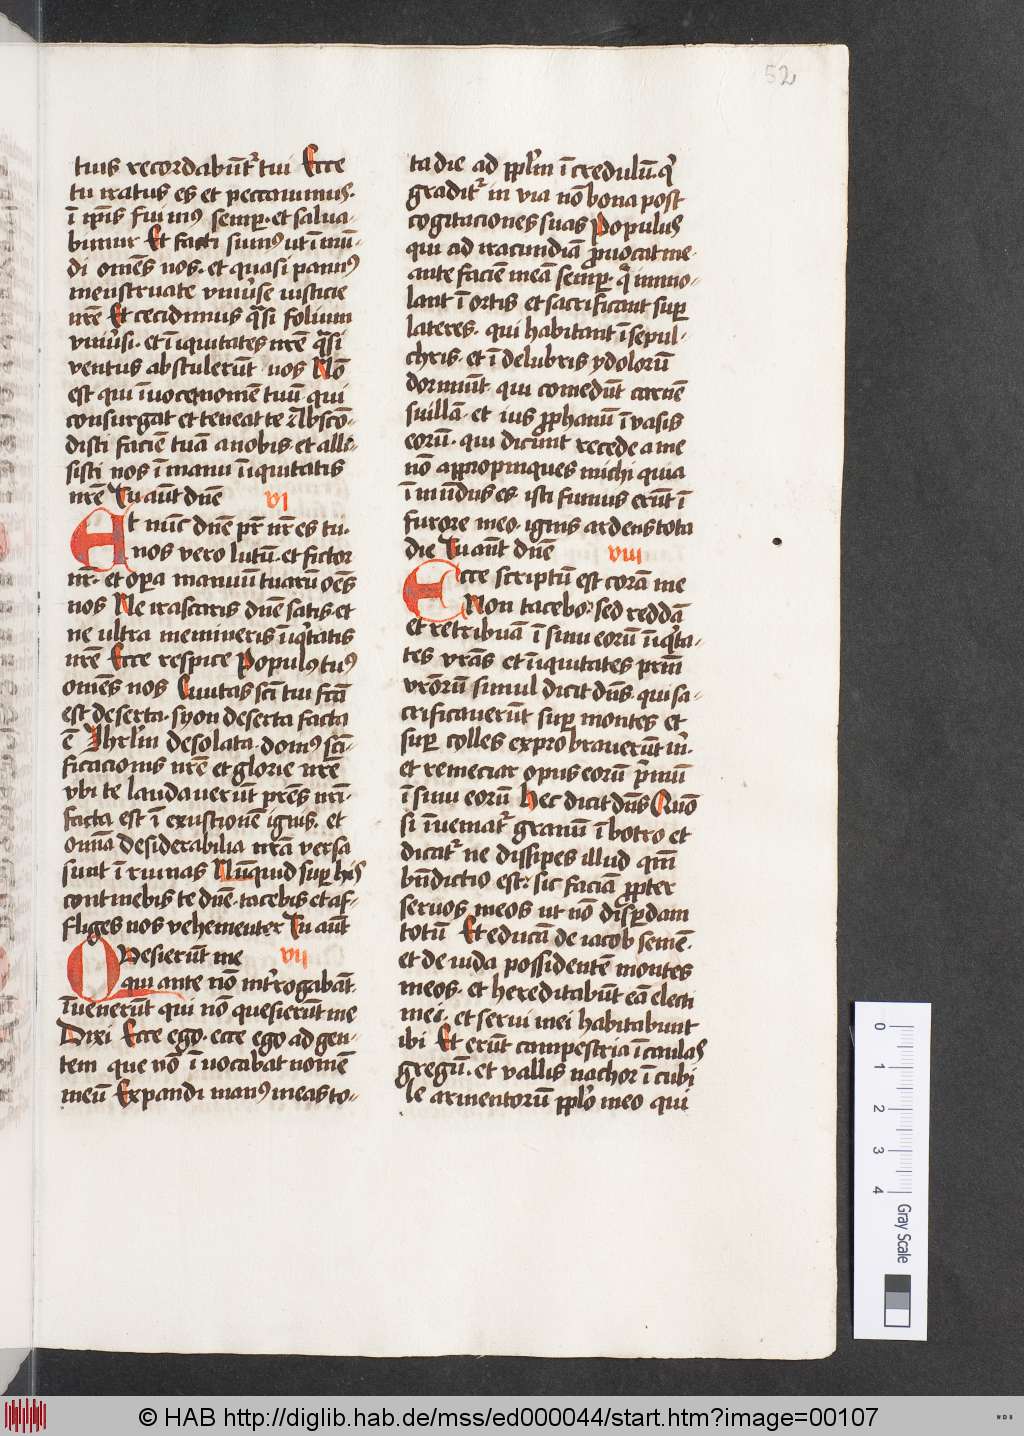 52
tuis recordabūt᷑ tui Ecce
tu iratus es et peccauimus.
ī ip̄is fuimꝰ semꝑ. et salua-
bimur Et facti sumꝰ ut īmū-
di om̄es nos. et quasi pannꝰ
menstruate vniu͛se iusticie
nr̄e Et cecidimus q̄si folium
vniu͛si. et īiquitates nr̄e q̄si
ventus abstulerūt nos Nō
est qui īuocet nomē tuū qui
consurgat et teneat te Abscō-
disti faciē tuā a nobis. et alli-
sisti nos ī manu īiquitatis
nr̄e Tu aūt dn̄e vi
Et nūc dn̄e pr̄ nr̄ es tu.
nos vero lutū. et fictor
nr̄. et oꝑa manuū tuarū oēs
nos Ne irascaris dn̄e satis. et
ne ultra memineris īiq̄tatis
nr̄e Ecce respice Populꝰ tuꝰ
om̄es nos Ciuitas sc̄i tui fc̄a
est deserta. syon deserta facta
ē Jhrl̄m desolata. domꝰ sc̄i-
ficacionis nr̄e et glorie nr̄e
vbi te laudauerūt pr̄es nr̄i.
facta est ī exustionē ignis. et
omīa desiderabilia nr̄a versa
sunt ī ruinas Nūquid suꝑ his
continebis te dn̄e. tacebis et af-
fliges nos vehementer Tu aūt
Quesierūt me vii
qui ante nō int͛rogabāt.
īuenerūt qui nō quesierūt me
Dixi Ecce ego. ecce ego ad gen-
tem que nō īuocabat nomē
meū Expandi manꝰ meas to-
ta die ad pp̄lm īcredulū. q͛
gradit᷑ in via nō bona post
cogitaciones suas Populus
qui ad iracundiā ꝓuocat me.
ante faciē meā semꝑ. q͛ immo-
lant ī ortis et sacrificant suꝑ
lateres. qui habitant ī sepul-
chris. et ī delubris ydolorū
dormiūt. qui comedūt carnē
suillā. et ius ꝓphanū ī vasis
eorū. qui dicunt recede a me
nō appropinques michi quia
īmūdus es. isti fumus erūt ī
furore meo. ignis ardens tota
die Tu aūt dn̄e viii
Ecce scriptū est corā me
Non tacebo. sed reddā
et retribuā ī sinu eorū īiq̄ta-
tes vr̄as et īiquitates pr̄m
vr̄orū simul dicit dn̄s. qui sa-
crificauerūt suꝑ montes et
suꝑ colles exprobrauerūt m͛.
et remeciar opus eorū p͛mū
ī sinu eorū Hec dicit dn̄s Quō
si īueniat᷑ granū ī botro et
dicat᷑ ne dissipes illud qm̄
bn̄dictio est. sic faciā ꝓpter
seruos meos ut nō disꝑdam
totū Et educā de iacob semē.
et de iuda possidentē montes
meos. et hereditabūt eā electi
mei. et serui mei habitabunt
ibi Et erūt campestria ī caulas
gregū. et vallis nachor ī cubi
le armentorū pp̄lo meo qui
0
1
2
3
4
Gray Scale
© HAB http://diglib.hab.de/mss/ed000044/start.htm?image=00107